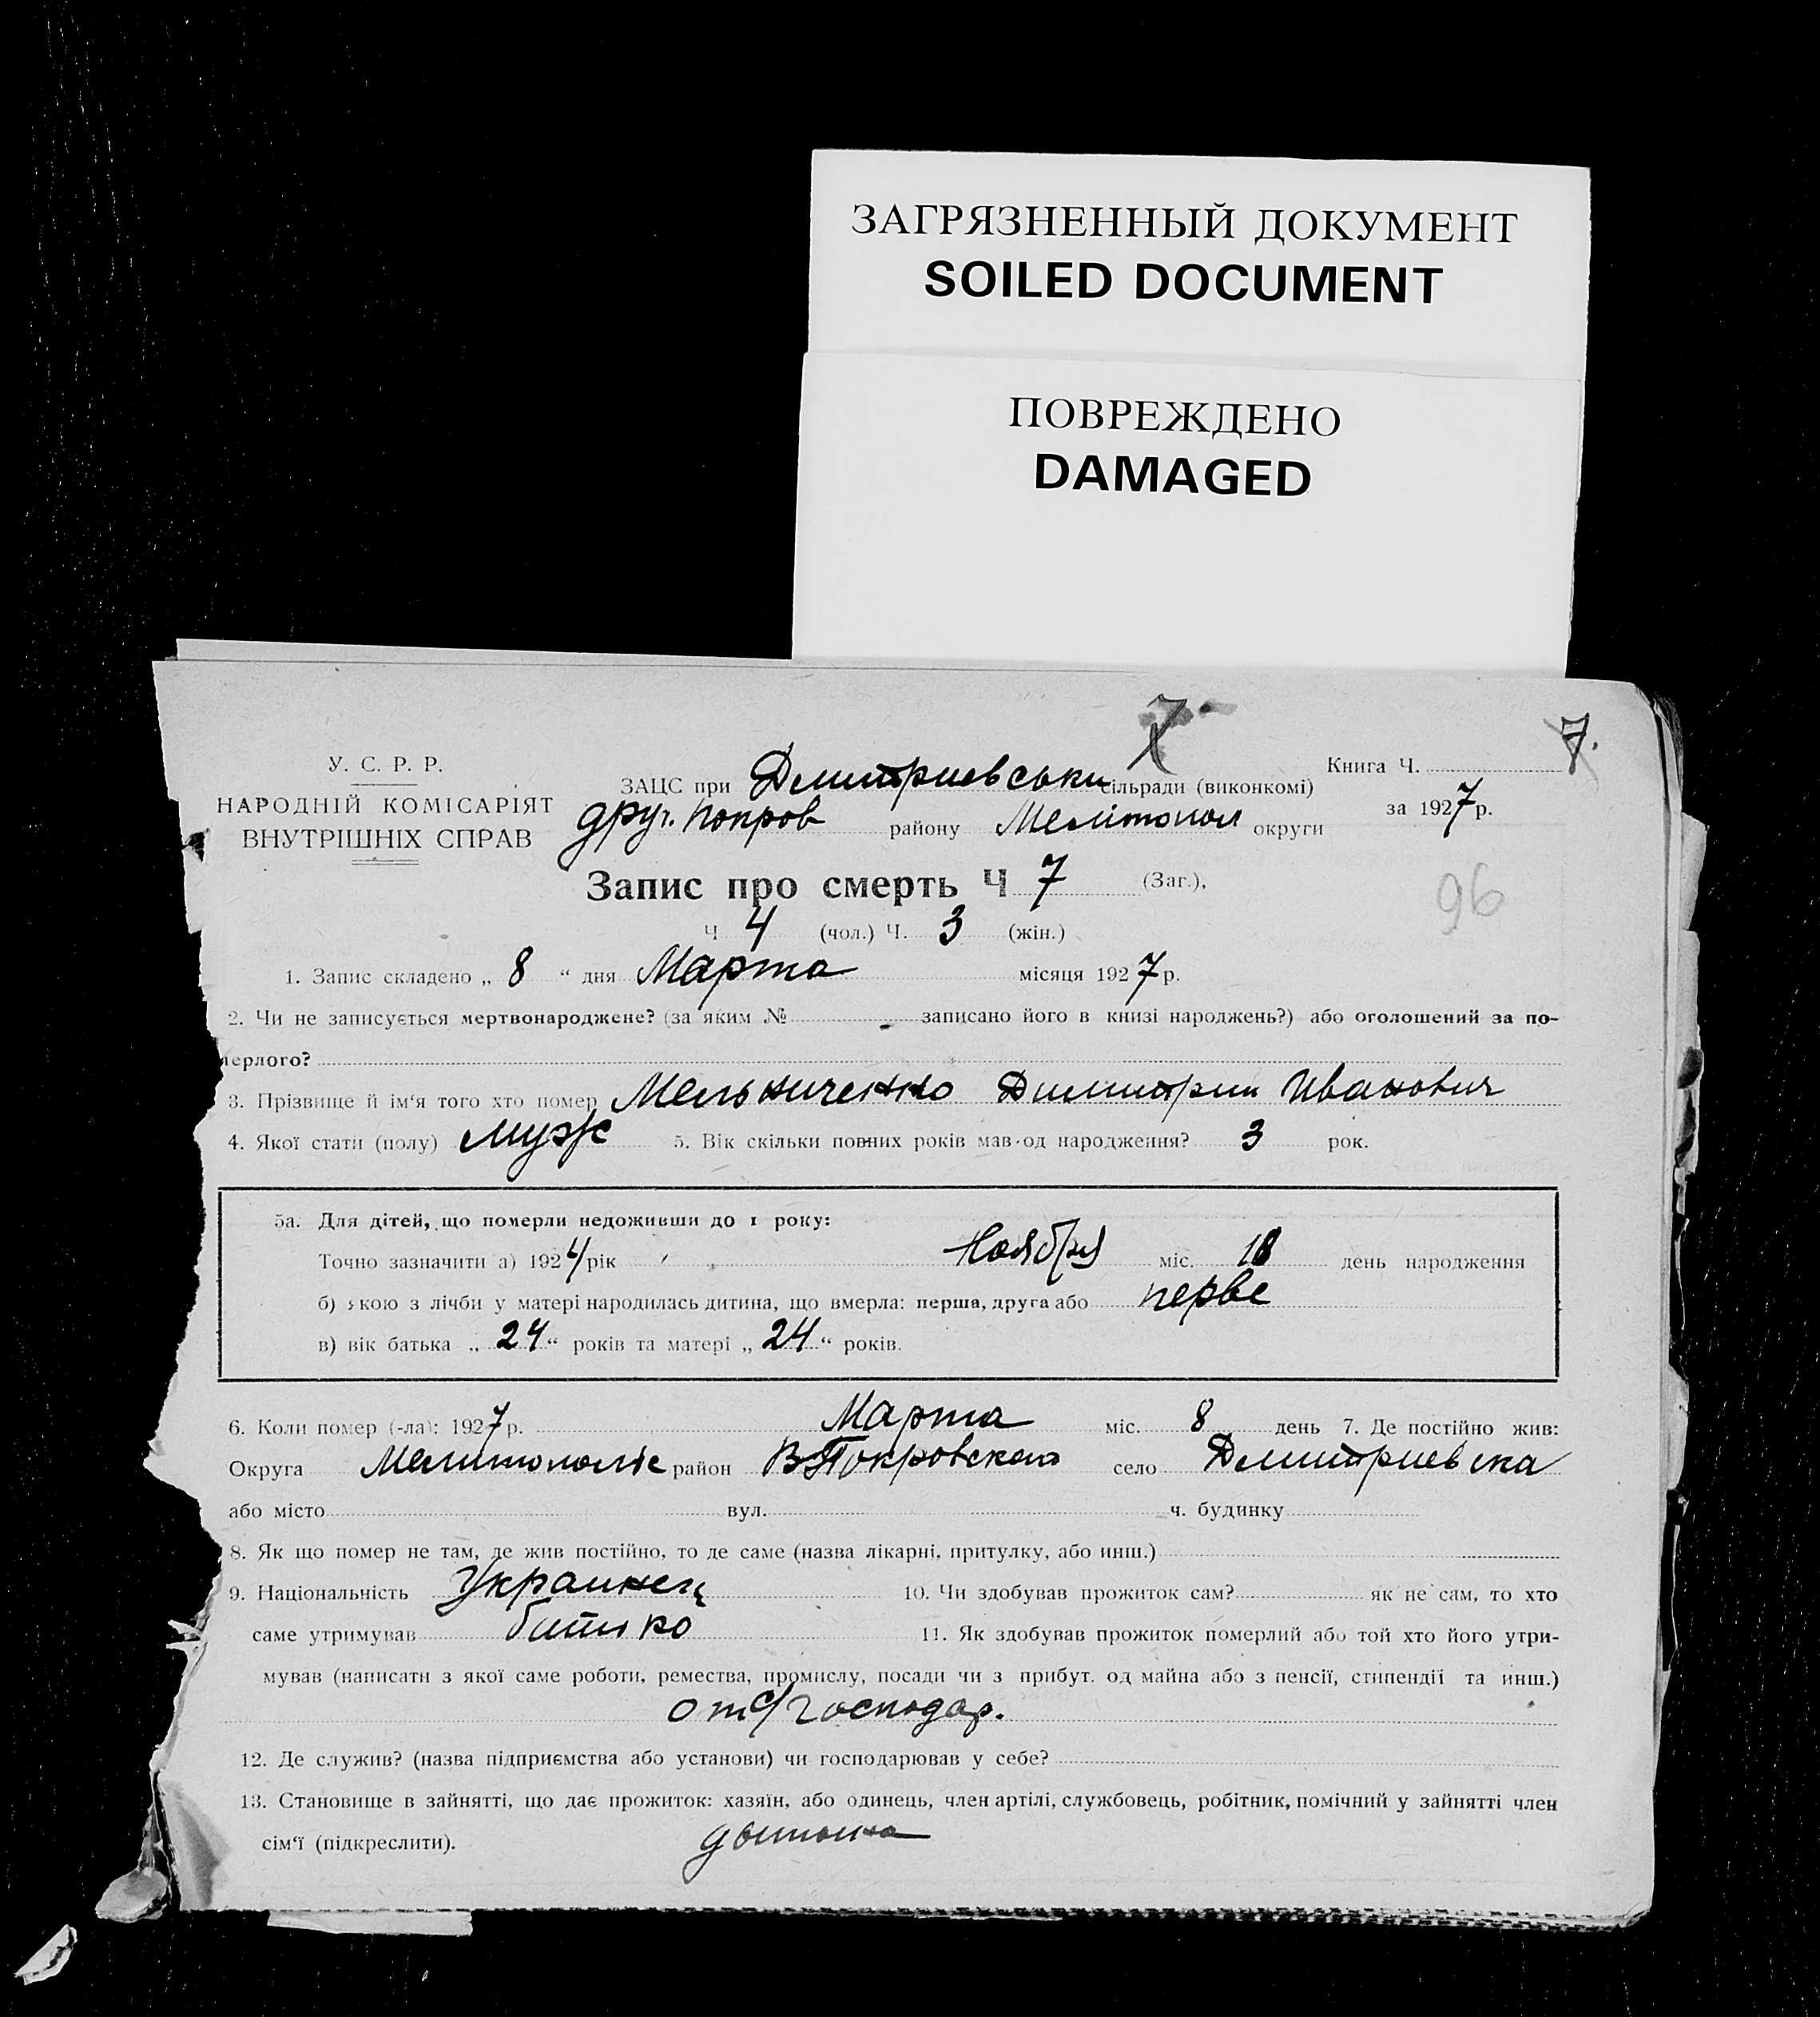 ЗАГРЯЗНЕННЫЙ ДОКУМЕНТ
SOILED DOCUMENT
ПОВРЕЖДЕНО
DAMAGED
7
7.
У. С. Р. Р.
НАРОДНІЙ КОМІСАРІЯТ
ВНУТРІШНІХ СПРАВ
ЗАЦС при Дмитриевськи сільради (виконкомі)
Книга Ч.
друг. покров району Мелітопол округи
за 1927 р.
Запис про смерть Ч 7 (Заг.),
96
Ч 4 (чол.) Ч. 3 (жін.)
1. Запис складено „ 8 “ дня Марта місяця 1927 р.
2. Чи не записується мертвонароджене? (за яким № записано його в книзі народжень?) або оголошений за по-
мерлого?
3. Прізвище й ім‘я того хто помер Мельниченко Димитрий Иванович
4. Якої стати (полу) Муж 5. Вік скільки повних років мав од народження? 3 рок.
5а. Для дітей, що померли недоживши до 1 року:
Точно зазначити а) 1924 рік Ноября міс. 18 день народження
б) якою з лічби у матері народилась дитина, що вмерла: перша, друга або перве
в) вік батька „ 24 “ років та матері „ 24 “ років.
6. Коли помер (-ла): 1927 р. Марта міс. 8 день 7. Де постійно жив:
Округа район В Покровского село Дмитриевка
або місто вул. ч. будинку
8. Як що помер не там, де жив постійно, то де саме (назва лікарні, притулку, або инш.)
9. Національність Украинец 10. Чи здобував прожиток сам? як не сам, то хто
саме утримував батько 11. Як здобував прожиток померлий або той хто його утри-
мував (написати з якої саме роботи, ремества, промислу, посади чи з прибут. од майна або з пенсії, стипендії та инш.)
от с/господар.
12. Де служив? (назва підприємства або установи) чи господарював у себе?
13. Становище в зайнятті, що дає прожиток: хазяїн, або одинець, член артілі, службовець, робітник, помічний у зайнятті член
сім‘ї (підкреслити).